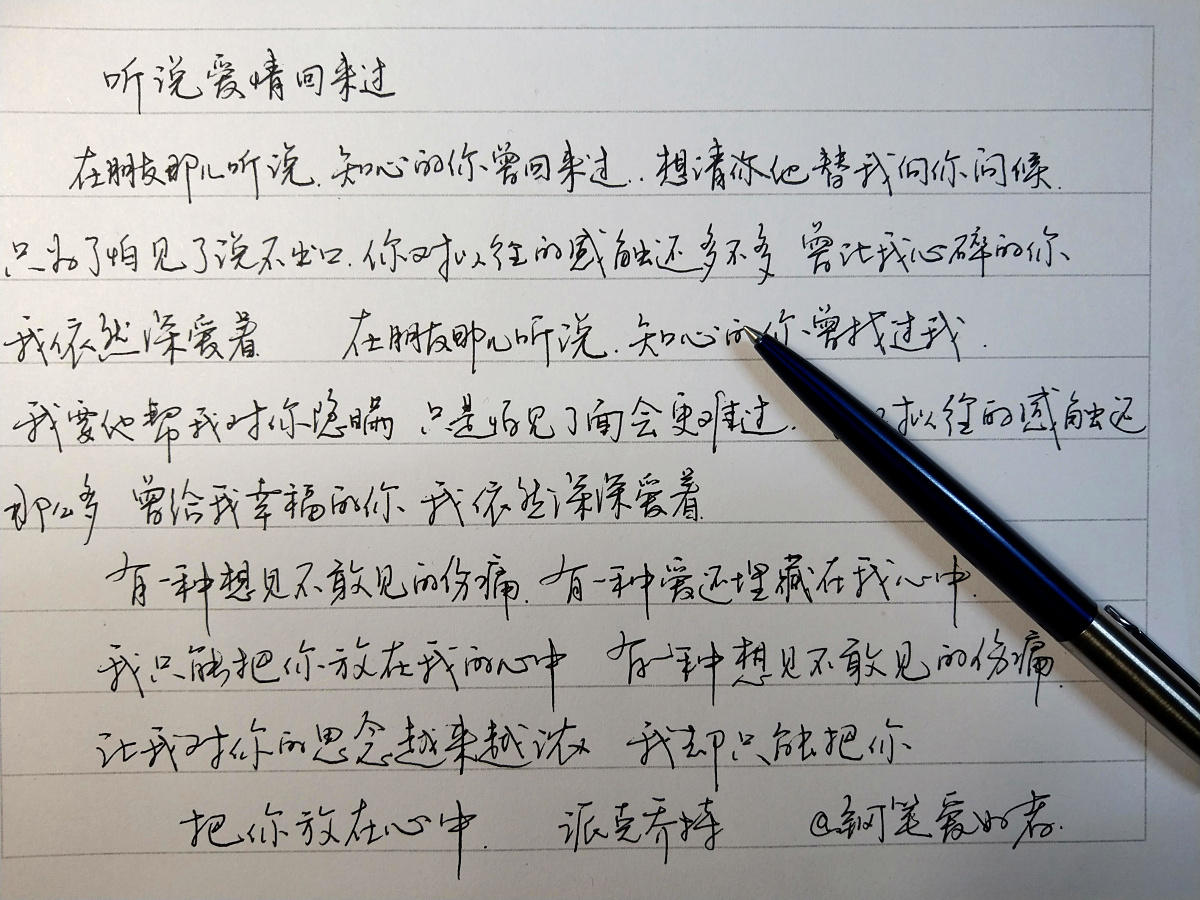 听说爱情回来过
在朋友那儿听说.知心的你曾回来过..想请你他替我向你问候.
只为了怕见了说不出口.你对以往的感触还多不多 曾让我心碎的你
我依然深爱着 在朋友那儿听说.知心的你曾找过我.
我要他帮我对你隐瞒 只是怕见了面会更难过. 以往的感触还
那么多 曾给我幸福的你 我依然深深爱着
有一种想见不敢见的伤痛.有一种爱还埋藏在我心中.
我只能把你放在我的心中 有一种想见不敢见的伤痛.
让我对你的思念越来越浓 我却只能把你
把你放在心中. 派克乔特 @钢笔爱好者.